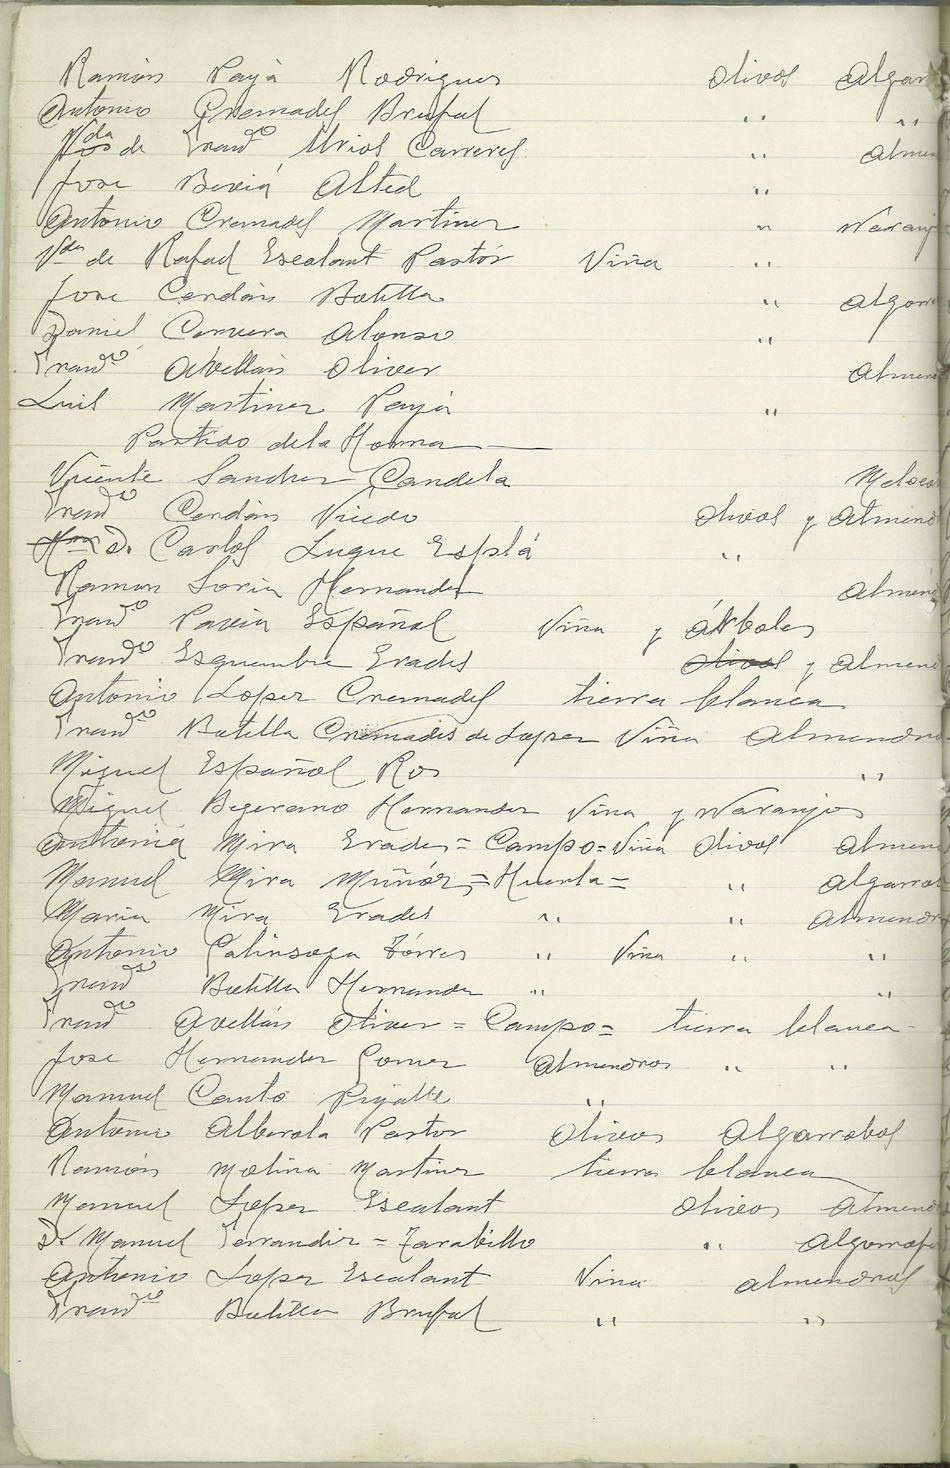 Ramón Payá Rodriguez olivos Algar
Antonio Cremades Brufal " "
Vda de Franco Mriol Carreres " Almen
Jose Beviá Alted "
Antonio Cremades Martinez " Naranj
Vda de Rafael Escalant Pastór Viña "
Jose Cerdán Botella " algarr
Daniel Cervera Alonso "
Franco Avellán Oliver Almend
Luis Martinez Payá "
Partido de la Horna
Vicente Sanchez Candela Meloco
Franco Cerdán Vicedo olivos y Almend
D. Carlos Luque Esplá "
Ramon Soria Hernandez Almen
Franco Pavia Español Viña y árboles
Franco Esquembre Erades olivos y almend
Antonio Lopez Cremades tierra blanca
Franco Botella Cremades de Lopez Viña Almendro
Miguel Español Ros "
Miguel Begerano Hernandez Viña y Naranjos
Antonia Mira Erades = Campo = Viña olivos almen
Manuel Mira Muñóz = Huerta = " algarrob
Maria Mira Erades " " Almendr
Antonio Galinsoga Tórres " Viña " "
Franco Botella Hernandez " "
Franco Avellán Oliver = Campo = tierra blanca
Jose Hernandez Gomez Almendros " "
Manuel Cantó "
Antonio Alberola Pastor Olivos Algarrobos
Ramón Molina Martinez tierra blanca
Manuel Lopez Escalant olivos Almend
Dn Manuel Ferrandiz = Tarabillo " algarrob
Antonio Lopez Escalant Viña almendros
Franco Botella Brufal " "